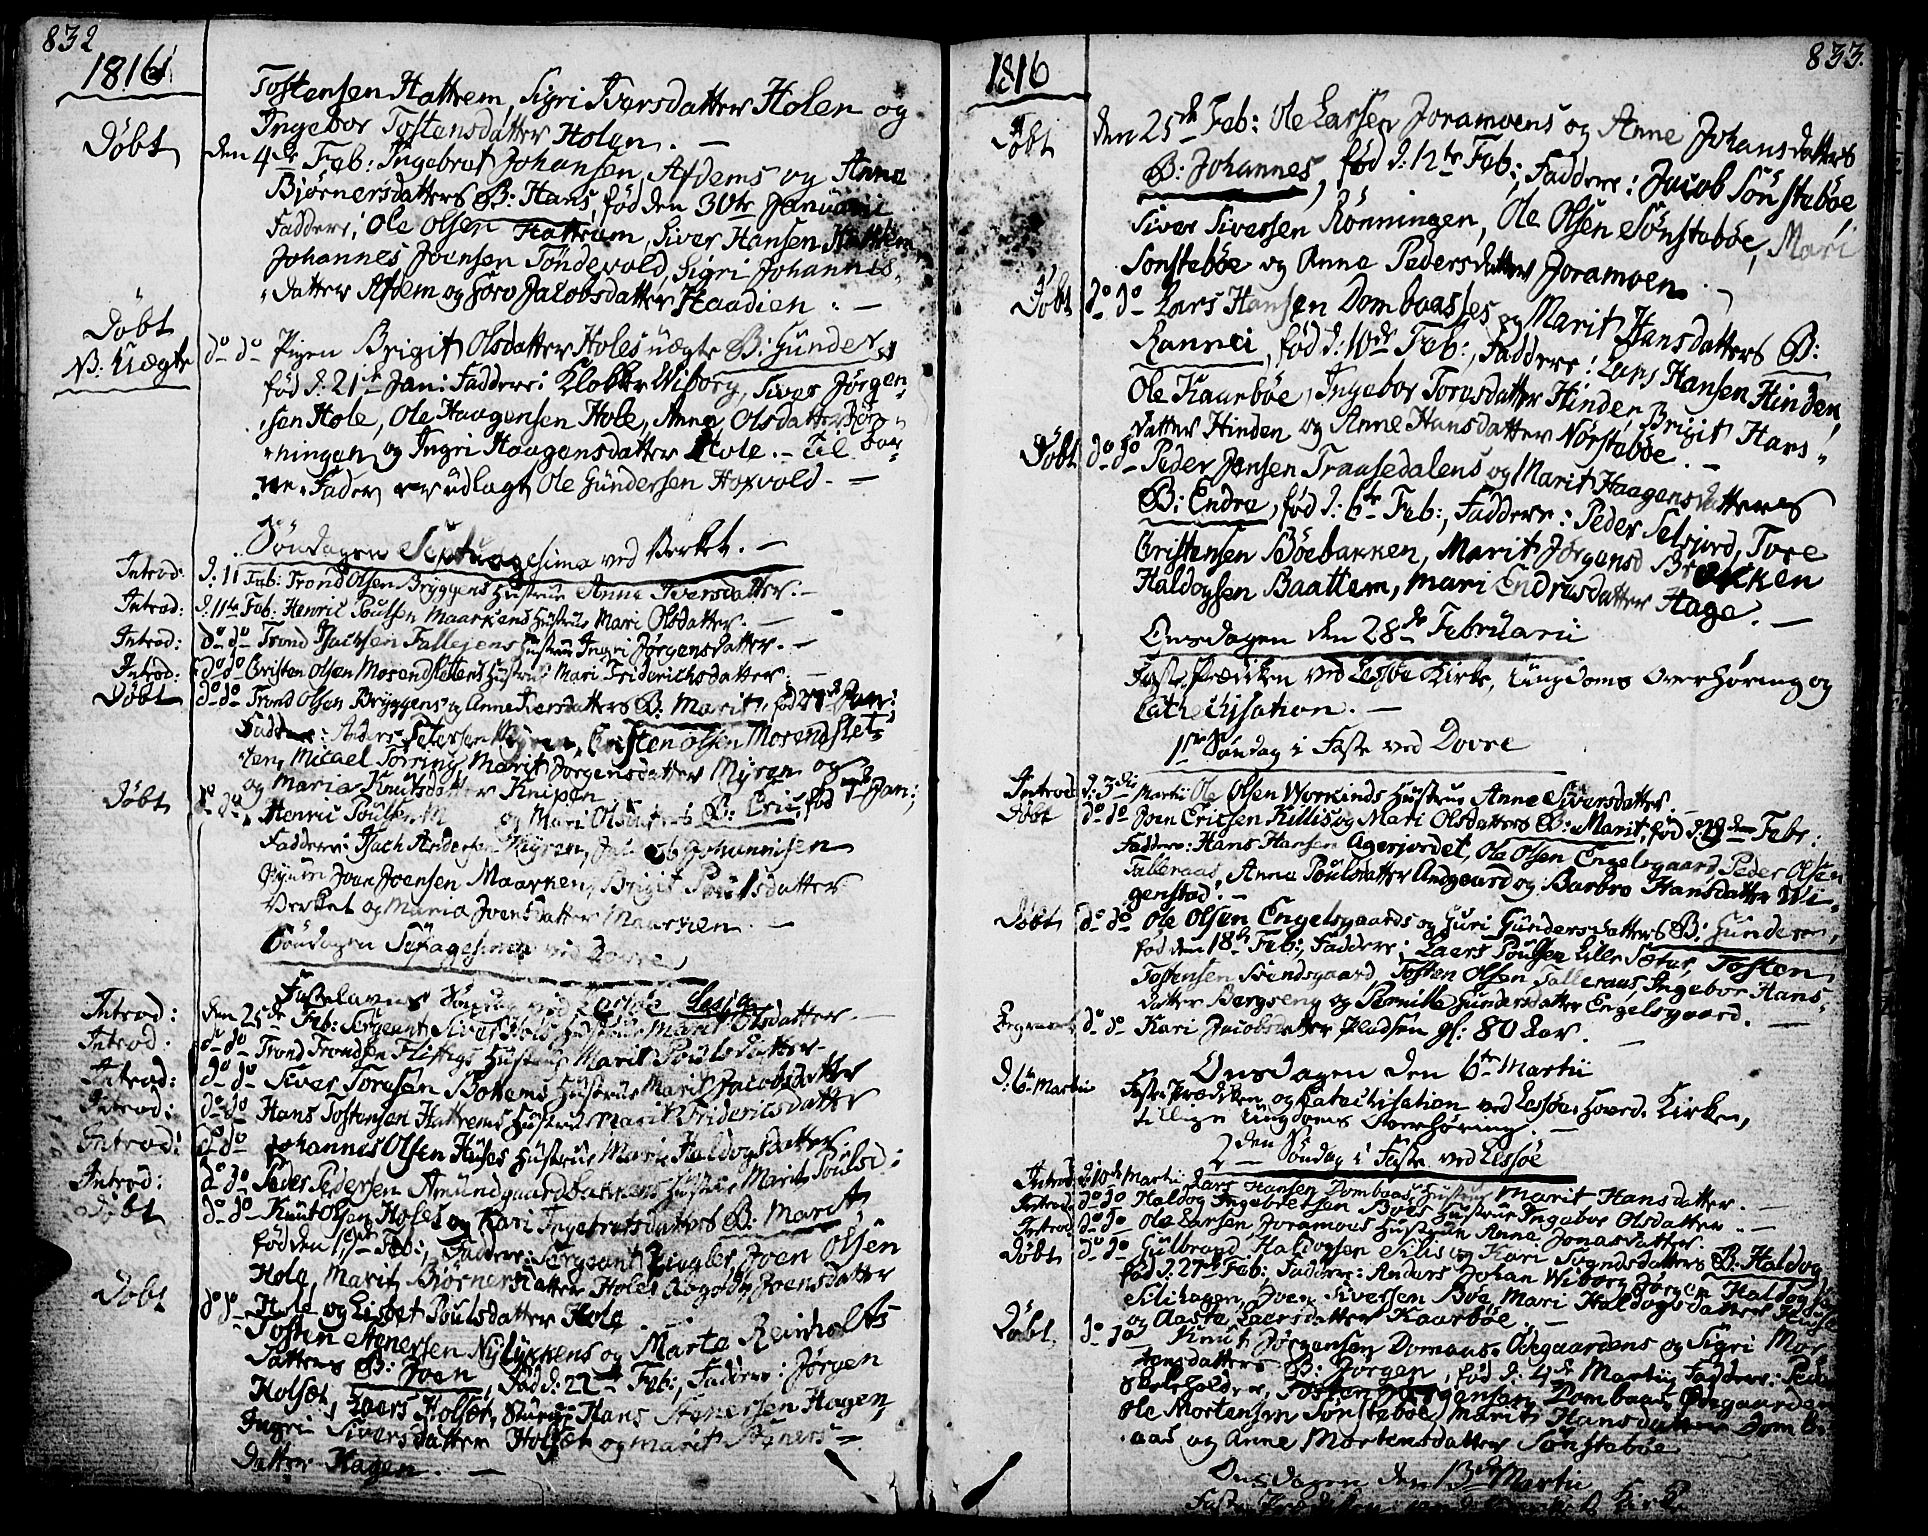 832
1816
Tostensen Hattrem, Sigri Iversdatter Holen og
Ingebor Tostensdatter Holen. —
Döbt
den 4de Feb: Ingebret Johansen Afdems og Anne
Bjørnersdatters B: Hans, fød den 30te Januarii
Faddere: Ole Olsen Hattrem, Siver Hansen Hattrem
Johannes Joensen Töndevold, Sigri Johannis-
datter Afdem og Goro Jacobsdatter Haadien. —
Döbt
N: Uægte
do do Pigen Brigit Olsdatter Holes uægte B: Gunder
fød d: 21de Jan: Faddere: Klokker Wiborg, Siver Jørgen
sen Hole, Ole Haagensen Hole, Anne Olsdatter Rön-
ningen og Ingri Haagensdatter Hole. — Til Bar-
ne-Fader er udlagt Ole Gundersen Hoxvold. —
Søndagen Septuagesima ved Verket. —
Introd: d: 11 Feb: Trond Olsen Bryggens Hustrue Anne Iversdatter. —
Introd: d: 11te Feb: Henric Poulsen Maarkens Hustrue Mari Olsdatter. —
Introd: do do Trond Isachsen Fallejens Hustrue Ingri Jørgensdatter. —
Introd: do do Cristen Olsen Mosendslettens Hustrue Mari Friderichsdatter. —
Döbt do do Trond Olsen Bryggens og Anne Iversdatters B: Marit, fød Jan:
Faddere: Anders Petersen Myren, Cristen Olsen Mosendslet-
ten, Micael Torring, Marit Jørgensdatter Myren og
og Maria Knutsdatter Knipen
Döbt do do Henric Poulsen og Mari Olsdatters B: Eric, fød Jan:
Faddere: Isach Andersen Myren, Jacob Johannisen
Joen Joensen Maarken, Brigit Poulsdatter
Verket og Maria Joensdatter Maarken. —
Søndagen Sexagesima ved Dovre
Fastelavns Søndag ved Lesje
Introd: den 25de Feb: Sergeant Siver Hols Hustrue Marit Olsdatter. —
Introd: do do Trond Trondsen Flittigs Hustrue Marit Poulsdatter
Introd: do do Siver Toresen Bottems Hustrue Marit Jacobsdatter
Introd: do do Hans Tostensen Hattrems Hustrue Marit Fridericsdatter
Introd: do do Johannes Olsen Huses Hustrue Mari Haldogsdatter.
Introd: do do Peder Pedersen Amundgaardbakkens Hustrue Marit Poulsd:
Döbt do do Knut Olsen Holes og Kari Ingebretsdatters B: Marit,
fød den 1ste Feb:, Faddere: Sergeant Ziegler, Joen Olsen
Hole, Marit Björnersdatter Holes Joensdatter
Hole og Lisbet Poulsdatter Hole
Döbt do do Tosten Stenersen Nylykkens og Marte Reinholts
datters B: Joen, fød d: 22de Feb:, Faddere: Jørgen
Holset, Laers Holset, Hans Stenersen Hagen,
Ingri Siversdatter Holset og Marit Steners-
datter Hagen. —
833
1816
Döbt den 25de Feb: Ole Larsen Joramoens og Anne Johansdatters
B: Johannes, fød d: 12te Feb:, Faddere: Jacob Sönstebøe,
Siver Siversen Rönningen, Ole Olsen Sönstebøe, Mari
Sonstebøe og Anne Pedersdatter Joramoen. —
Döbt do do Lars Hansen Dombaasses og Marit Hansdatters B:
Rannei, fød d: 10de Feb:, Faddere: Lars Hansen Hinden,
Ole Kaarbøe, Ingebor Toresdatter Hinden, Brigit Hans-
datter Hinden og Anne Hansdatter Nörstebøe. —
Döbt do do Peder Jensen Traasedalens og Marit Haagensdatters
B: Endre, fød d: 6te Feb:, Faddere: Peder Selsjord, Tore
Cristensen Böebakken, Marit Jørgensd Brækken
Haldogsen Baattem, Mari Endresdatter Hage. —
Onsdagen den 28de Februarii
Faste Prædiken ved Lessøe Kirke, Ungdoms Overhøring og
Catechisation. —
1ste Søndag i Faste ved Dovre
Introd d: 3die Martii Ole Olsen Workinds Hustrue Anne Siversdatter. —
Döbt do do Joen Ericsen Killis og Mari Olsdatters B: Marit, fød d: 29den Febr:
Faddere: Hans Hansen Agerjordet, Ole Olsen Engelsgaard, Peder Olsen
Talleraas, Anne Poulsdatter Andgaard og Barbro Hansdatter Wi-
genstad. —
Döbt do do Ole Olsen Engelsgaards og Guri Gundersdatters B: Gunder,
fød den 18de Feb:, Faddere: Laers Poulsen Lille Sæter, Tosten
Tostensen Brandsgaard, Tosten Olsen Talleraas, Ingebor Hans-
datter Bergseng og Pernille Gundersdatter Engelsgaard. —
Begravet do do Kari Jacobsdatter Pladsen gl: 80 Aar. —
Onsdagen den 6te Martii
d: 6te Martii Faste Prædiken og Catechisation ved Lessøe Hoved Kirken,
tillige Ungdoms Overhöring. —
2den Søndag i Faste ved Lessøe
Introd: d: 10de Martii Lars Hansen Dombaas Hustrue Marit Hansdatter. —
Introd: do do Haldog Ingebretsen Boes Hustrue Ingebor Olsdatter. —
Introd: do do Ole Larsen Joramoes Hustrue Anne Jonasdatter.
Döbt do do Gulbrand Haldogsen Silis og Kari Sogndsdatters B: Haldog,
fød d: 27de Feb: Faddere: Anders Johan Wiborg, Jörgen Haldogsen
Silihagen, Joen Siversen Boe, Mari Haldogsdatter
og Aaste Laersdatter Kaarbøe. —
Döbt do do Knut Jørgensen Domaas-Ödegaardens og Sigri Mor-
tensdatters B: Jørgen, fød d: 4de Martii, Faddere: Peder
Skoleholder, Tosten Jørgensen Dombaas Ödegaarden
Ole Mortensen Sönstebøe, Marit Hansdatter Domb-
aas og Anne Mortensdatter Sönstebøe
Onsdagen den 13de Martii
Faste Kirke